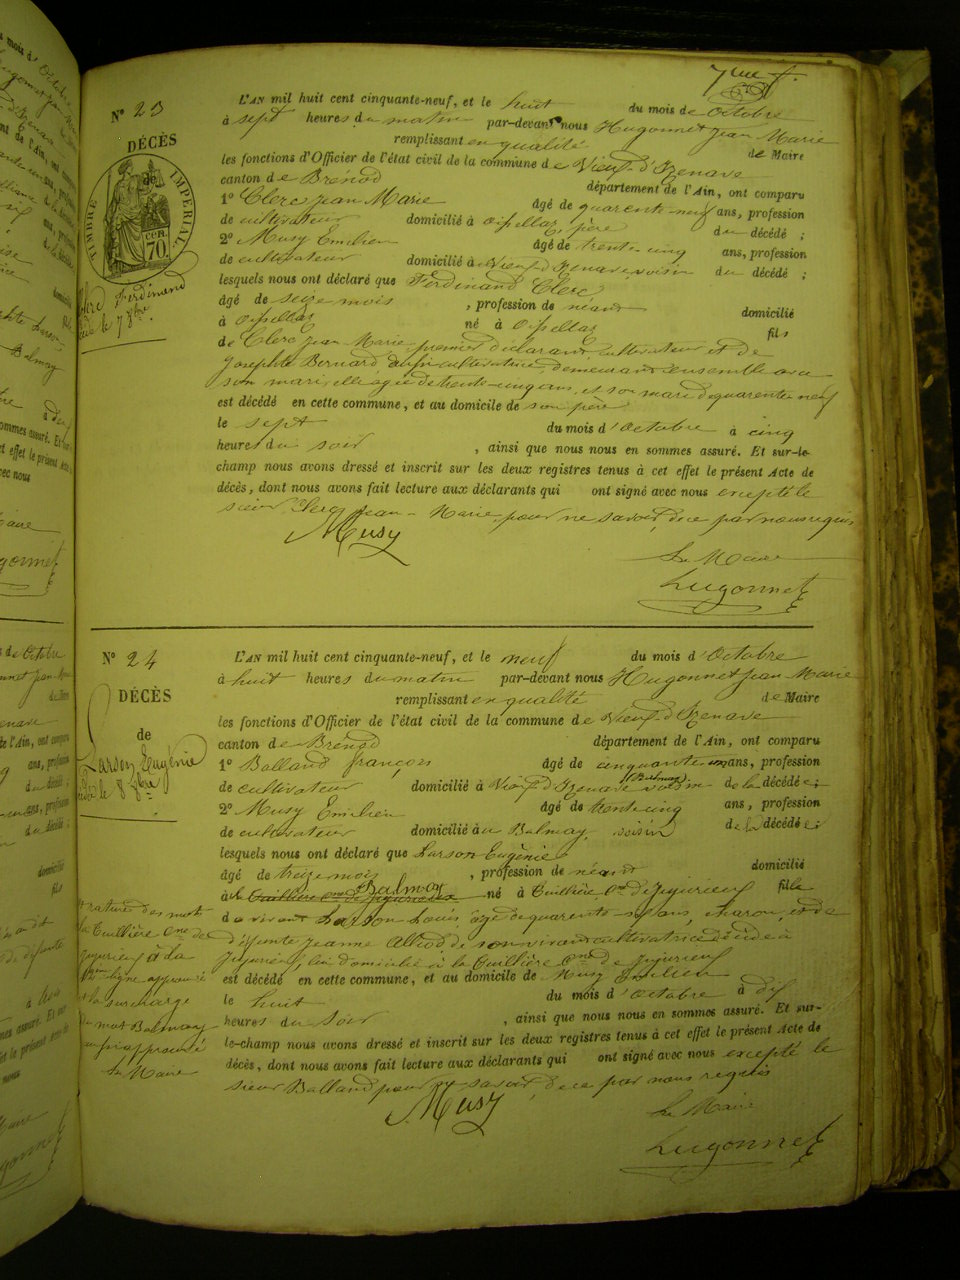 7me f.
N° 23
DÉCÈS
TIMBRE IMPÉRIAL
CEN. 70.
Clerc Ferdinand
le 7 8bre.
L'AN mil huit cent cinquante-neuf, et le huit du mois de Octobre
à sept heures du matin par-devant nous Hugonnet Jean Marie
remplissant en qualité de Maire
les fonctions d'Officier de l'état civil de la commune de Vieux d'Izenave
canton de Brénod département de l'Ain, ont comparu
1° Clerc Jean Marie âgé de quarente-neuf ans, profession
de cultivateur domicilié à Oisellaz père du décédé ;
2° Musy Emilien âgé de trente-cinq ans, profession
de cultivateur domicilié à Vieux d'Izenave, voisin du décédé ;
lesquels nous ont déclaré que Ferdinand Clerc
âgé de seize mois , profession de néant domicilié
à Oisellaz né à Oisellaz fils
de Clerc Jean Marie premier déclarant cultivateur et de
Josephte Bernard, aussi cultivatrice, demeurant ensemble avec
son mari, elle agée de trente-cinq ans, et son mari de quarente neuf
est décédé en cette commune, et au domicile de son père
le sept du mois d'Octobre à cinq
heures du soir , ainsi que nous nous en sommes assuré. Et sur-le-
champ nous avons dressé et inscrit sur les deux registres tenus à cet effet le présent Acte de
décès, dont nous avons fait lecture aux déclarants qui ont signé avec nous excepté le
sieur Clerc Jean-Marie, pour ne savoir, de ce par nous requis
Musy
Le Maire
Hugonnet
N° 24
DÉCÈS
de
Larson Eugénie
le 8 8bre
L'AN mil huit cent cinquante-neuf, et le neuf du mois d'Octobre
à huit heures du matin par-devant nous Hugonnet Jean-Marie
remplissant en qualité de Maire
les fonctions d'Officier de l'état civil de la commune de Vieux-d'Izenave
canton de Brénod département de l'Ain, ont comparu
1° Balland françois âgé de cinquante un ans, profession
de cultivateur domicilié à Vieux d'Izenave (Balmay) voisin de la décédée ;
2° Musy Emilien âgé de trente-cinq ans, profession
de cultivateur domicilié au Balmay, voisin de la décédée ;
lesquels nous ont déclaré que Larson Eugénie
âgé de treize mois , profession de néant domicilié
Balmay né à Cuillière Cne de Jujurieux fille
de vivant Larson Louis, âgé de quarente six ans, charon, et de
défunte Jeanne Alliod de son vivant cultivatrice décédée à
Jujurieux, lui domicilié à la Cuillière Cne de Jujurieux
est décédé en cette commune, et au domicile de Musy Emilien
le huit du mois d'Octobre à dix
heures du soir , ainsi que nous nous en sommes assuré. Et sur-
le-champ nous avons dressé et inscrit sur les deux registres tenus à cet effet le présent Acte de
décès, dont nous avons fait lecture aux déclarants qui ont signé avec nous excepté le
sieur Balland pour ne savoir, de ce par nous requis
Musy
Le Maire
Hugonnet
rature des mots
la Cuillière Cne de
Jujurieux à la
12me ligne approuvé
et la surcharge
du mot Balmay
aussi approuvé
Le Maire